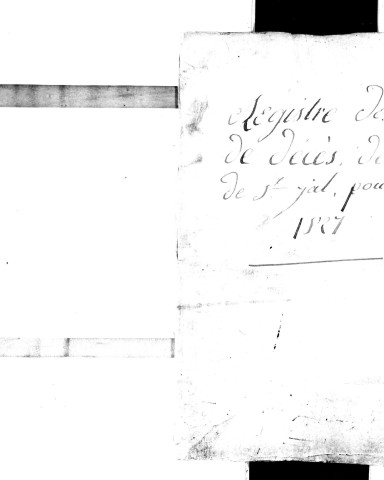 Registre des
de décès, de
de St jal, pour
1827